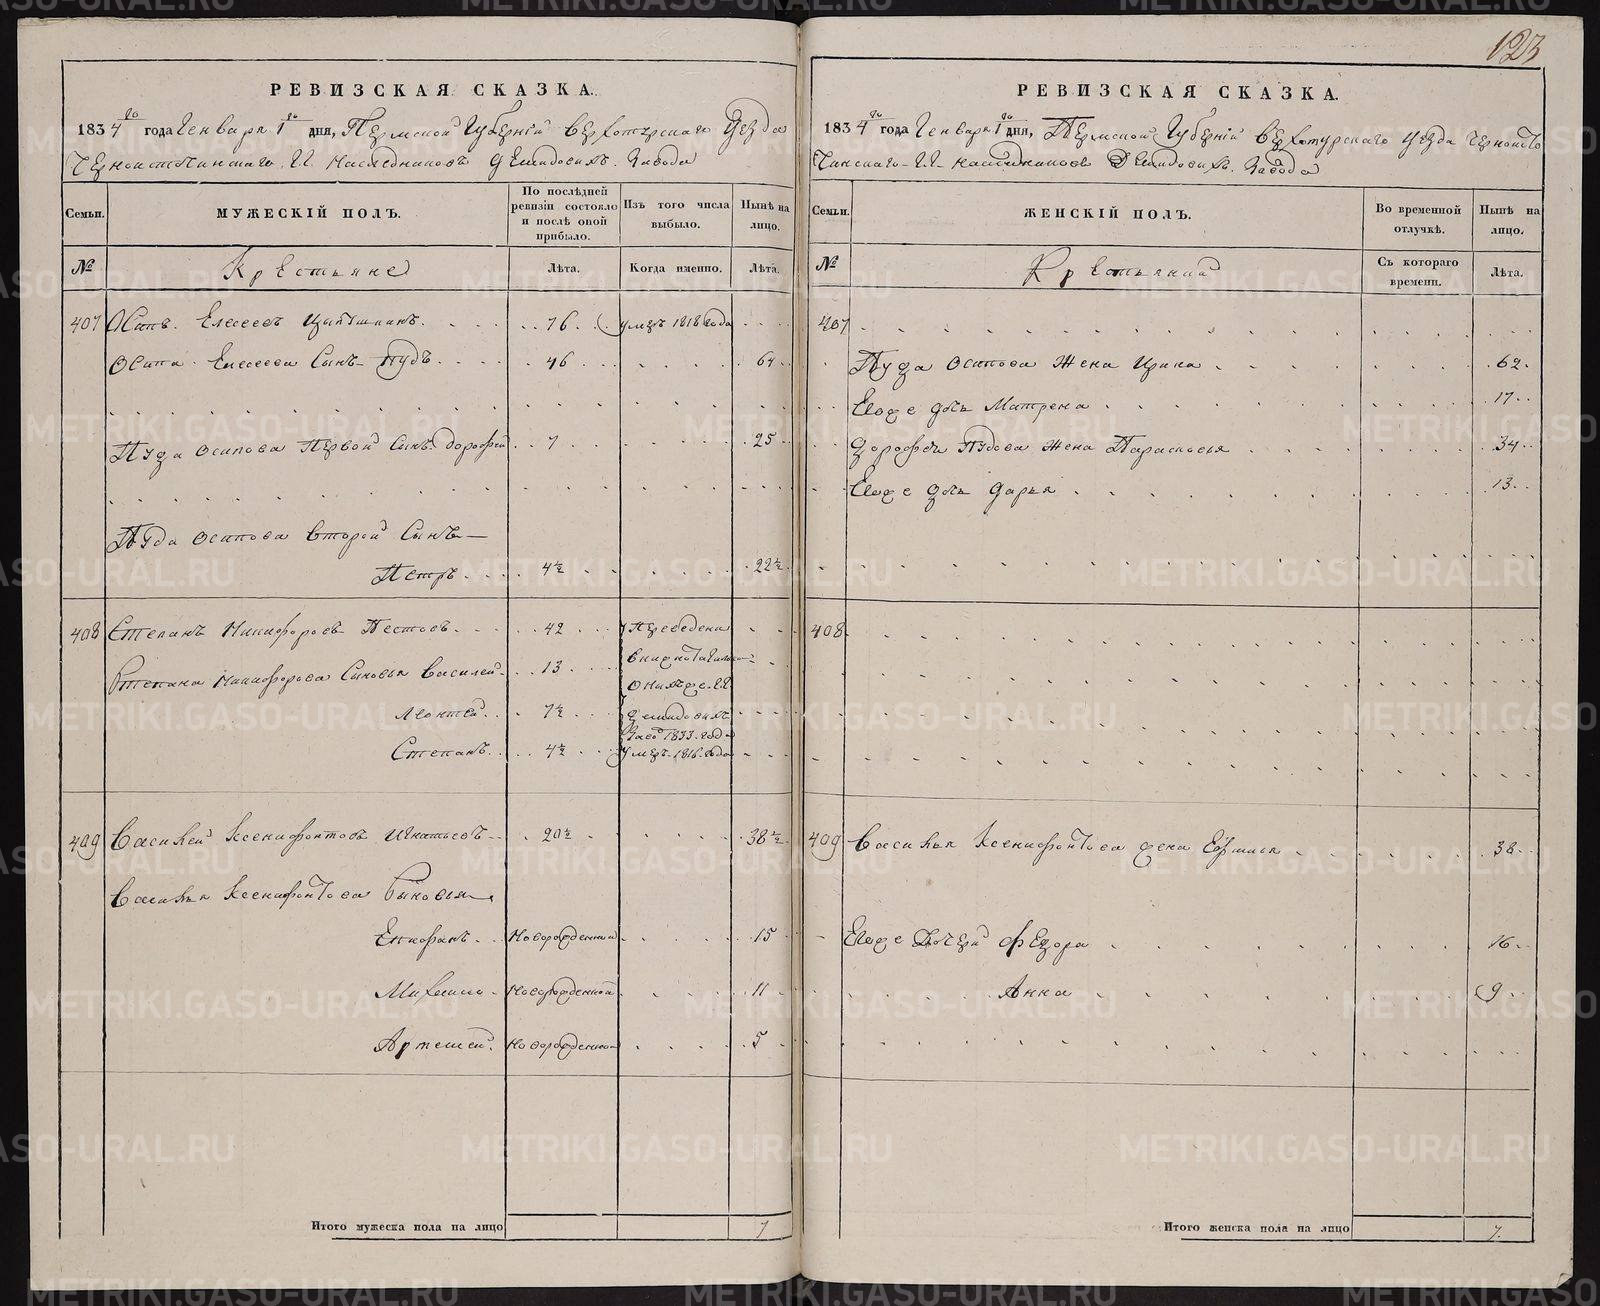 123
РЕВИЗСКАЯ СКАЗКА.
1834го года Генваря 1го дня, Пермской Губернїи Верхотурского Уезда
Черноисточинскаго Г.Г. Наследниковъ Демидовыхъ Завода
Семьи.
МУЖЕСКІЙ ПОЛЪ.
По послѣдней ревизіи состояло и послѣ оной прибыло.
Изъ того числа выбыло.
Нынѣ на лицо.
№
Крестьяне
Лѣта.
Когда именно.
Лѣта.
407 Осипъ Елесеевъ 76 умеръ 1818 года
Осипа Елесеева Сынъ Пудъ 46 64
Пуда Осипова Первой Сынъ Дорофей 7 25
Пуда Осипова Второй Сынъ
Петръ 4½ 22½
408 Степанъ Никифоровъ Пестовъ 42 Переведены
Степана Никифорова Сыновья Василей 13
Леонтей 7½ Демидовыхъ
Заво 1833 года
Степанъ 4½ Умеръ 1816 года
409 Василей Ксенифонтовъ Игнатьевъ 20½ 38½
Василья Ксенифонтова Сыновья
Епифанъ Новорожденной 15
Михайло Новорожденной 11
Артемей Новорожденной 5
Итого мужеска пола на лицо 7
РЕВИЗСКАЯ СКАЗКА.
1834го года Генваря 1го дня, Пермской Губернїи Верхотурскаго Уезда Черноисто
чинскаго Г.Г. Наследниковъ Демидовыхъ Завода
Семьи.
ЖЕНСКІЙ ПОЛЪ.
Во временной отлучкѣ.
Нынѣ на лицо.
№
Крестьяний
Съ котораго времени.
Лѣта.
407
Пуда Осипова Жена Ирина 62
Ево же дочь Матрена 17
Дорофея Пудова Жена Парасковья 34
Ево же дочь Дарья 13
408
409 Василья Ксенифонтова жена 38
Ево же Дочери Федора 16
Анна 9
Итого женска пола на лицо 7
METRIKI.GASO-URAL.RU